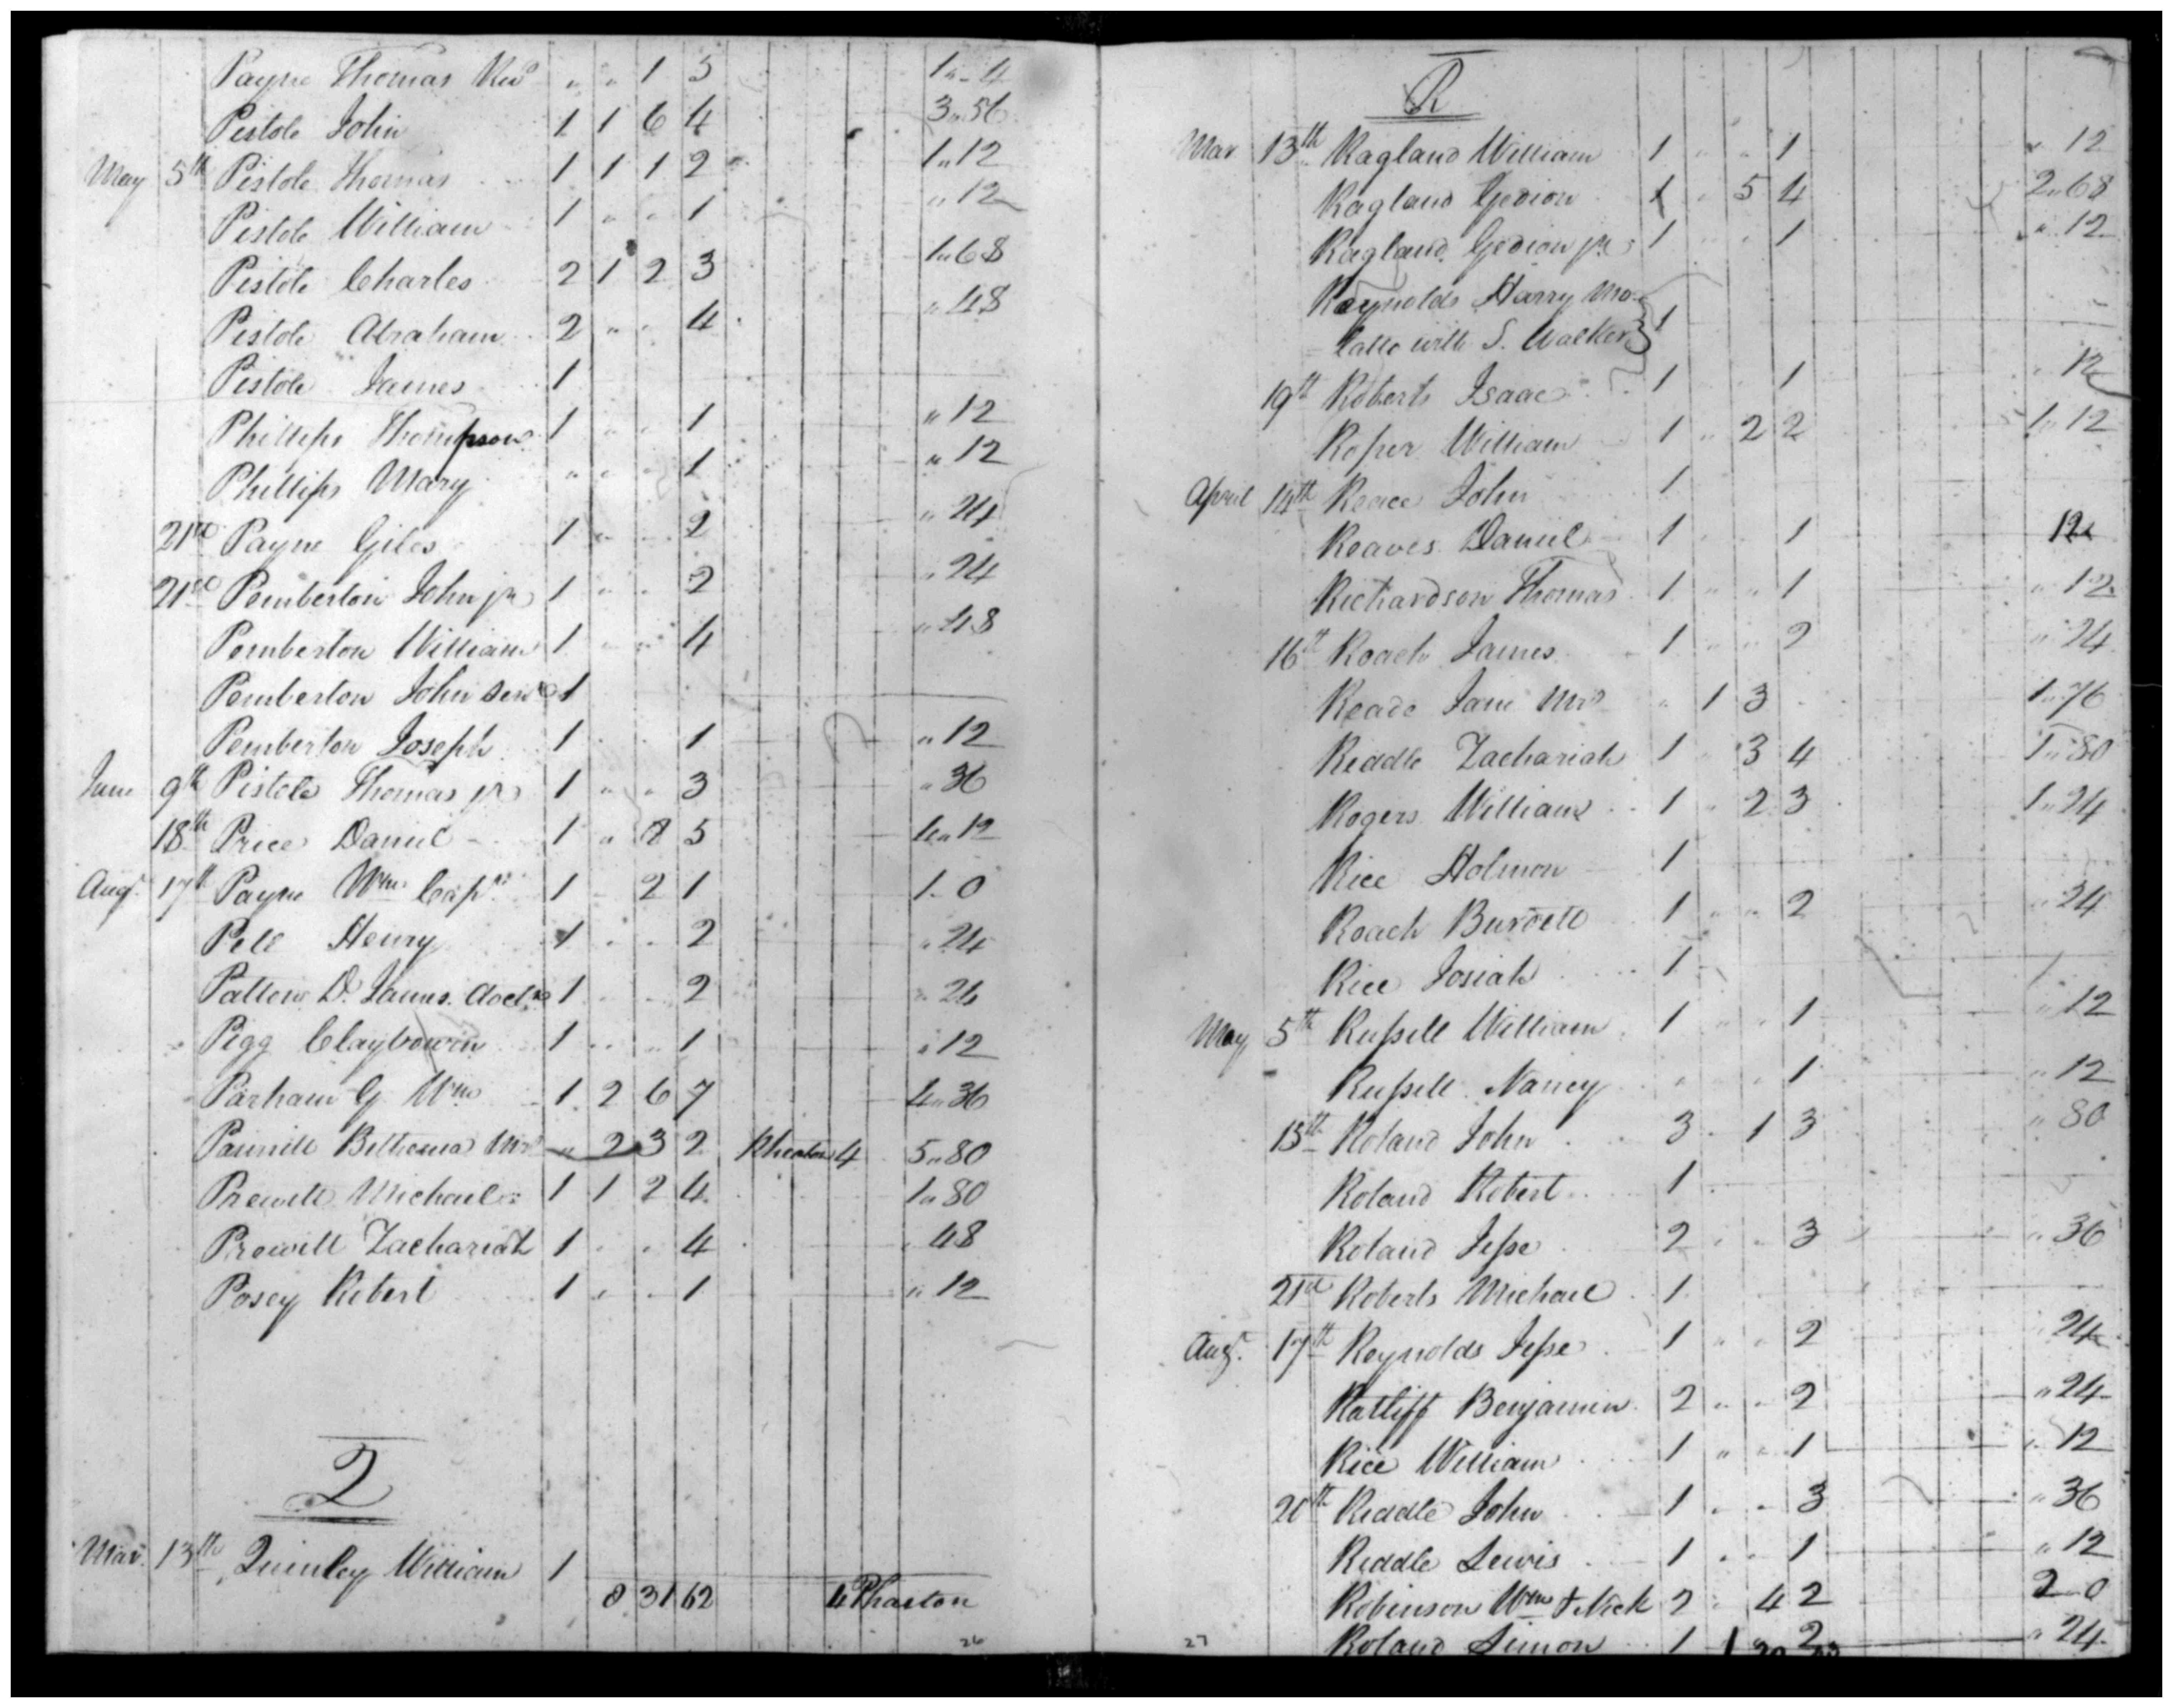 Payne Thomas Rev^d " " 1 3 1 " 4
Pistole John 1 1 6 4 3 " 56
May 5th Pistole Thomas 1 1 1 2 1 " 12
Pistole William 1 " " 1 " 12
Pistole Charles 2 1 2 3 1 " 68
Pistole Abraham 2 " " 4 " 48
Pistole James 1
Phillips Thompson 1 " " 1 " 12
Phillips Mary " " " 1 " 12
21st Payne Giles 1 " " 2 " 24
21st Pemberton John jr 1 " " 2 " 24
Pemberton William 1 " " 4 " 48
Pemberton John senr 1
Pemberton Joseph 1 " " 1 " 12
June 9th Pistole Thomas jr 1 " " 3 " 36
18th Price Daniel 1 " 8 5 4 " 12
Aug. 17th Payne Wm Capt 1 " 2 1 1 " 0
Pell Henry 1 " " 2 " 24
Patton D. James Doctr 1 " " 2 " 24
Pigg Clayborn 1 " " 1 " 12
Parham G Wm 1 2 6 7 4 " 36
Pannill Bethenia Mrs " 2 3 2 Pheaton 4 5 " 80
Prewitt Michael 1 1 2 4 1 " 80
Prewitt Zachariah 1 " " 4 " 48
Posey Robert 1 " " 1 " 12
Q
Mar. 13th Quinley William 1
8 31 62 4 Phaeton
26
R
Mar 13th Ragland William 1 " " 1 " 12
Ragland Gedion 1 " 5 4 2 " 68
Ragland Gedion jr 1 " " 1 " 12
Reynolds Harry Mo-
latto with S. Walker } 1
19th Roberts Isaac 1 " " 1 " 12
Roper William 1 " 2 2 1 " 12
April 14th Reace John 1
Reaves Daniel 1 " " 1 12
Richardson Thomas 1 " " 1 " 12
16th Roach James 1 " " 2 " 24
Reade Jane Mrs " 1 3 1 " 76
Riddle Zachariah 1 " 3 4 1 " 80
Rogers William 1 " 2 3 1 " 24
Rice Holmon 1
Roach Burdett 1 " " 2 " 24
Rice Josiah 1
May 5th Russell William 1 " " 1 " 12
Russell Nancy " " " 1 " 12
15th Roland John 3 " 1 3 " 80
Roland Robert 1
Roland Jesse 2 " " 3 " 36
21st Roberts Michael 1
Aug. 17th Reynolds Jesse 1 " " 2 " 24
Ratliff Benjamin 2 " " 2 " 24
Rice William 1 " " 1 " 12
20th Riddle John 1 " " 3 " 36
Riddle Lewis 1 " " 1 " 12
Robinson Wm & Nick 2 " 4 2 2 " 0
27 Roland Simon 1 2 " 24